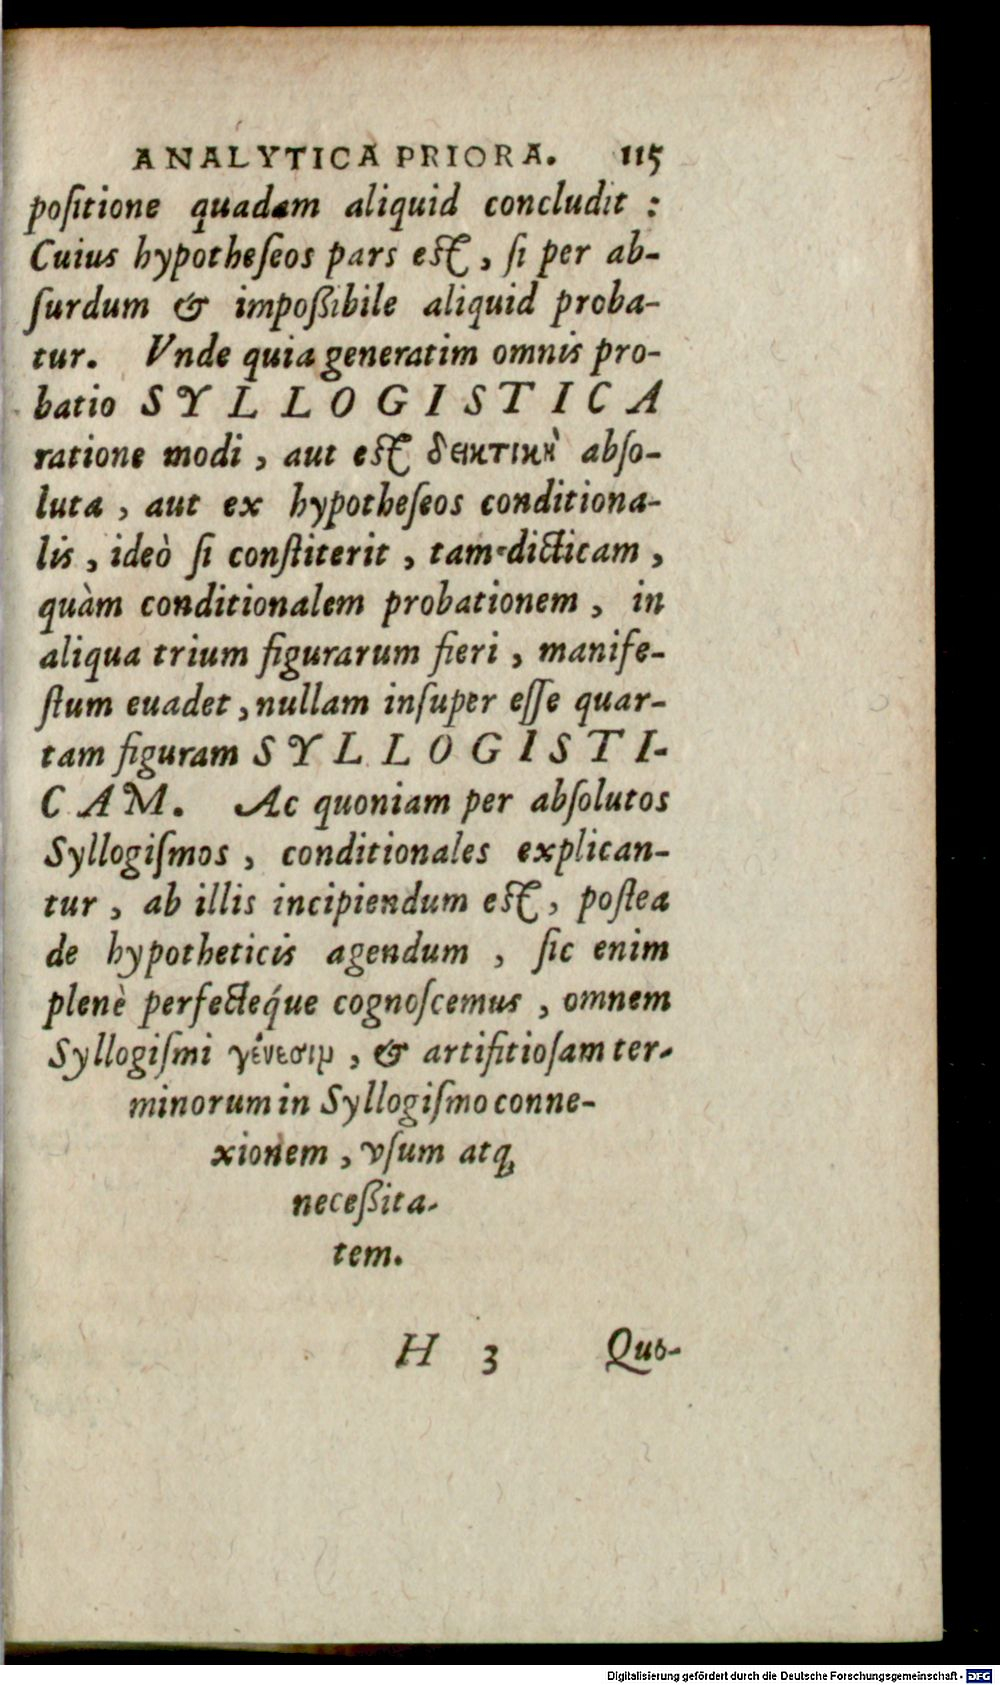 ANALYTICA PRIORA. 115
poſitione quadam aliquid concludit :
Cuius hypotheſeos pars eſt, ſi per ab-
ſurdum & impoßibile aliquid proba-
tur. Vnde quia generatim omnis pro-
batio SYLLOGISTICA
ratione modi, aut eſt δεικτικὴ abſo-
luta, aut ex hypotheſeos conditiona-
lis, ideò ſi conſtiterit, tam dicticam,
quàm conditionalem probationem, in
aliqua trium figurarum fieri, manife-
ſtum euadet, nullam inſuper eſſe quar-
tam figuram SYLLOGISTI-
CAM. Ac quoniam per abſolutos
Syllogiſmos, conditionales explican-
tur, ab illis incipiendum eſt, poſtea
de hypotheticis agendum, ſic enim
plenè perfectéque cognoſcemus, omnem
Syllogiſmi γένεσιμ, & artifitioſam ter-
minorum in Syllogiſmo conne-
xionem, vſum atq;
neceßita-
tem.
H 3 Quo-
Digitalisierung gefördert durch die Deutsche Forschungsgemeinschaft - DFG